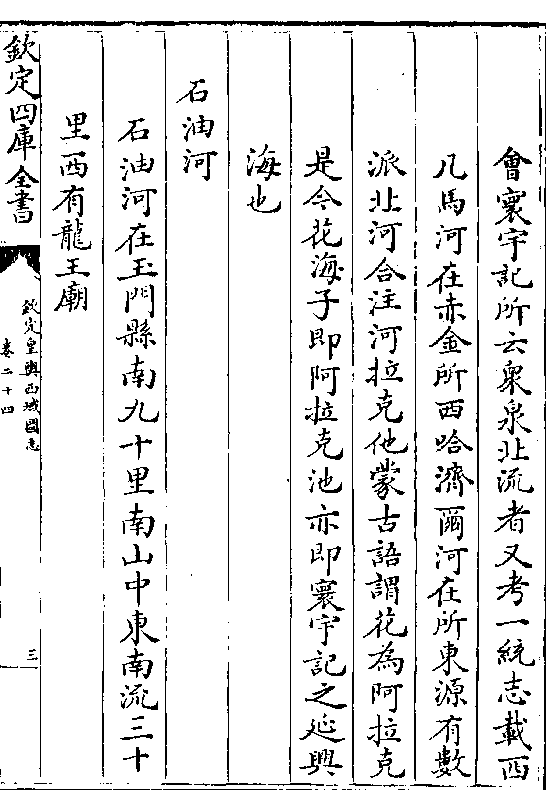 會寰宇記所云衆泉北流者又考一統志載西
凡馬河在赤金所西哈濟爾河在所東源有數
派北河合注河拉克他蒙古語謂花為阿拉克
是今花海子即阿拉克池亦即寰宇記之延興
海也
石油河
石油河在玉門縣南九十里南山中東南流三十
里西有龍王廟
欽定四庫全書
欽定皇輿西域圖志
卷二十四
三